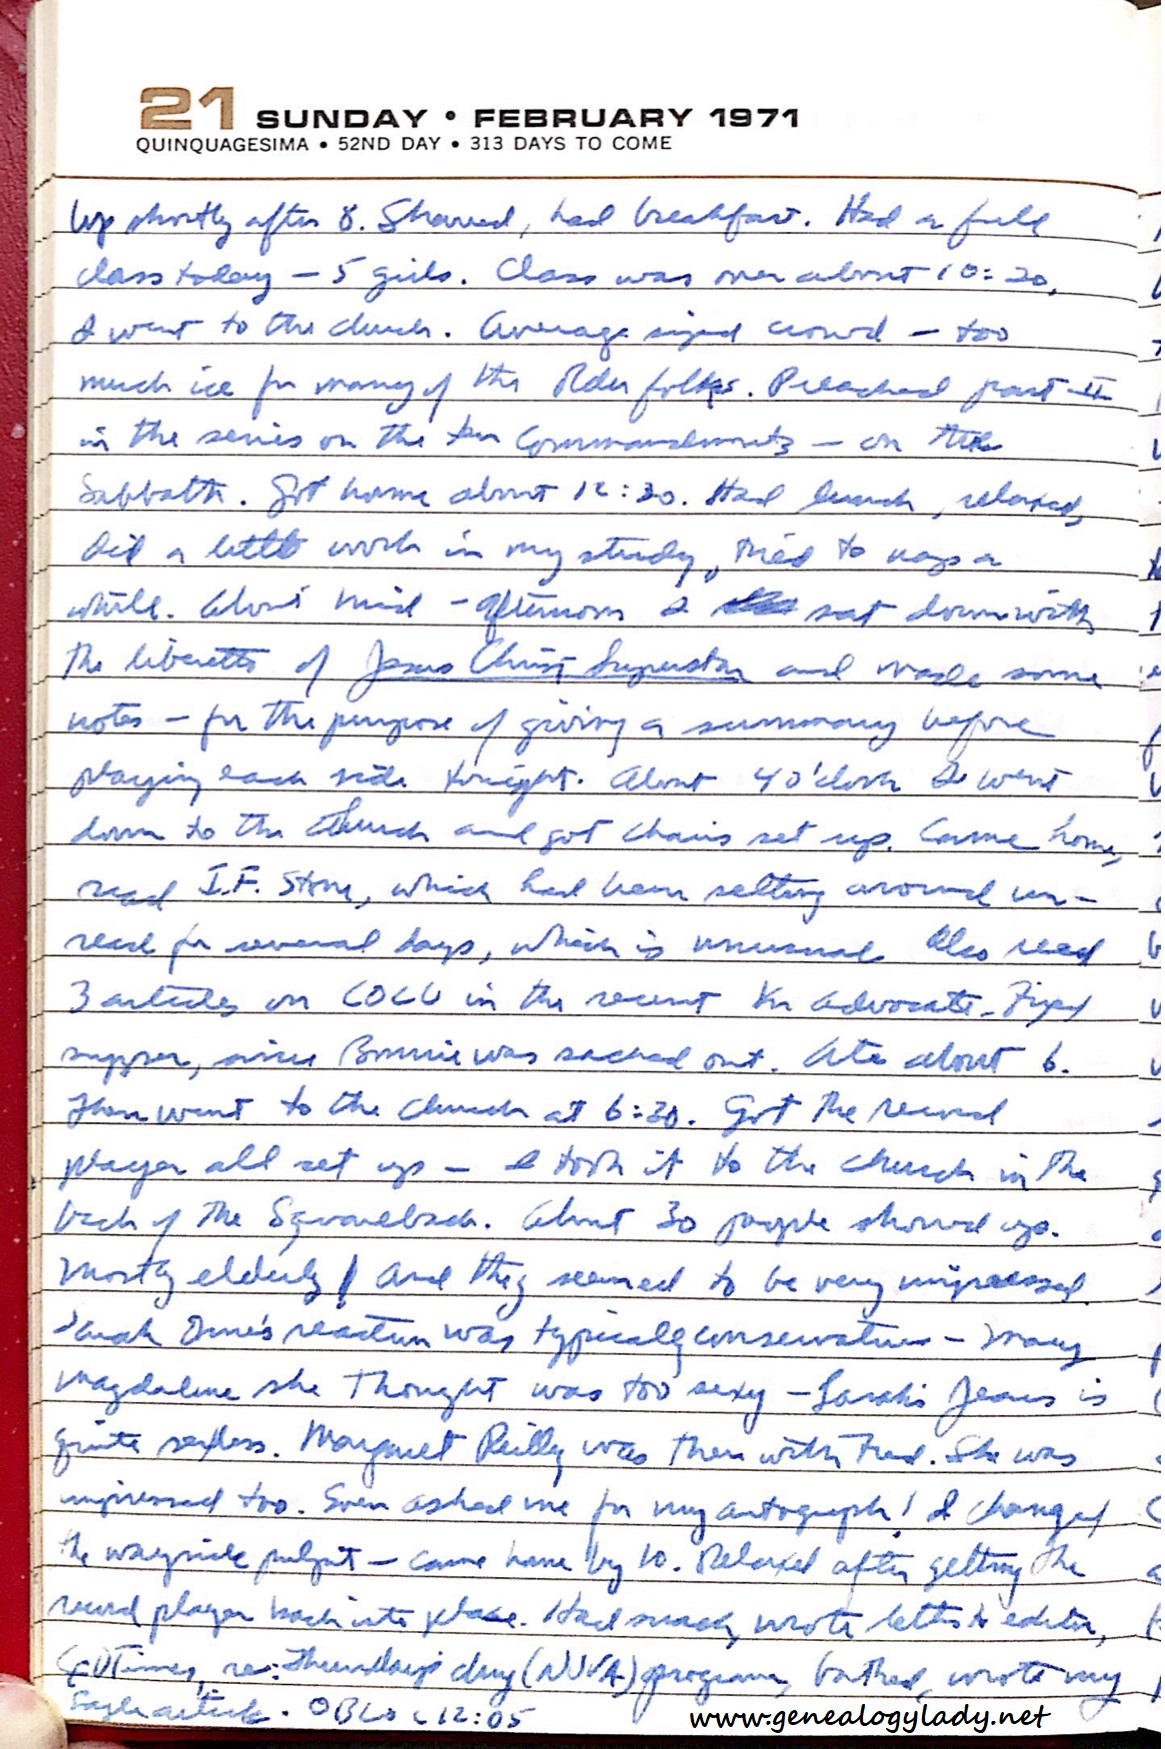 21 SUNDAY • FEBRUARY 1971
QUINQUAGESIMA • 52ND DAY • 313 DAYS TO COME
Up shortly after 8. Shaved, had breakfast. Had a full
class today – 5 girls. Class was over about 10:20,
I went to the church. Average sized crowd – too
much ice for many of the older folks. Preached part II
in the series on the ten Commandments – on the
Sabbath. Got home about 12:30. Had lunch, relaxed,
did a little work in my study, tried to nap a
while. About mid-afternoon I sat down with
the libretto of Jesus Christ Superstar and made some
notes – for the purpose of giving a summary before
playing each side tonight. About 4 o'clock I went
down to the church and got chairs set up. Came home,
read I.F. Stone, which had been setting around un-
read for several days, which is unusual. Also read
3 articles on COCU in the recent Xn Advocate. Fixed
supper, since Bonnie was sacked out. Ate about 6.
Then went to the church at 6:30. Got the record
player all set up – I took it to the church in the
back of the Squareback. About 30 people showed up.
Mostly elderly! And they seemed to be very impressed.
Sarah reaction was typically conservative – Mary
Magdalene she thought was too sexy – Sarah's Jesus is
quite sexless. Margaret Reilly was there with Fred. She was
impressed too. Even asked me for my autograph! I changed
the wayside pulpit – came home by 10. Relaxed after getting the
record player back into place. Had snack, wrote letter to editor,
Times, re: Thursday's drug program, bathed, wrote my
Eagle article. 12:05
www.genealogylady.net